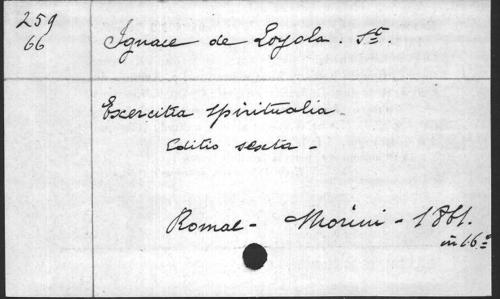 259
66
Ignace de Loyola. St.
Exercitia spiritualia.
Editio sexta -
Romae - Morini - 1861.
in 16°